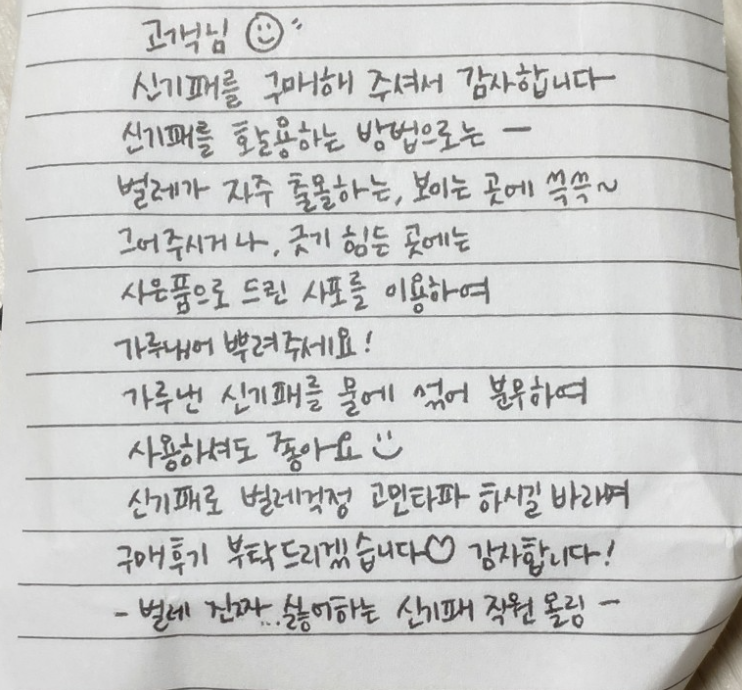 고객님
신기패를 구매해 주셔서 감사합니다
신기패를 활용하는 방법으로는 -
벌레가 자주 출몰하는, 보이는 곳에 쓱쓱~
그어주시거나, 긋기 힘든 곳에는
사은품으로 드린 사포를 이용하여
가루내어 뿌려주세요!
가루낸 신기패를 물에 섞어 분무하여
사용하셔도 좋아요
신기패로 벌레걱정 고민타파 하시길 바라며
구매후기 부탁드리겠습니다♡ 감사합니다!
- 벌레 진짜...싫어하는 신기패 직원 올림 -